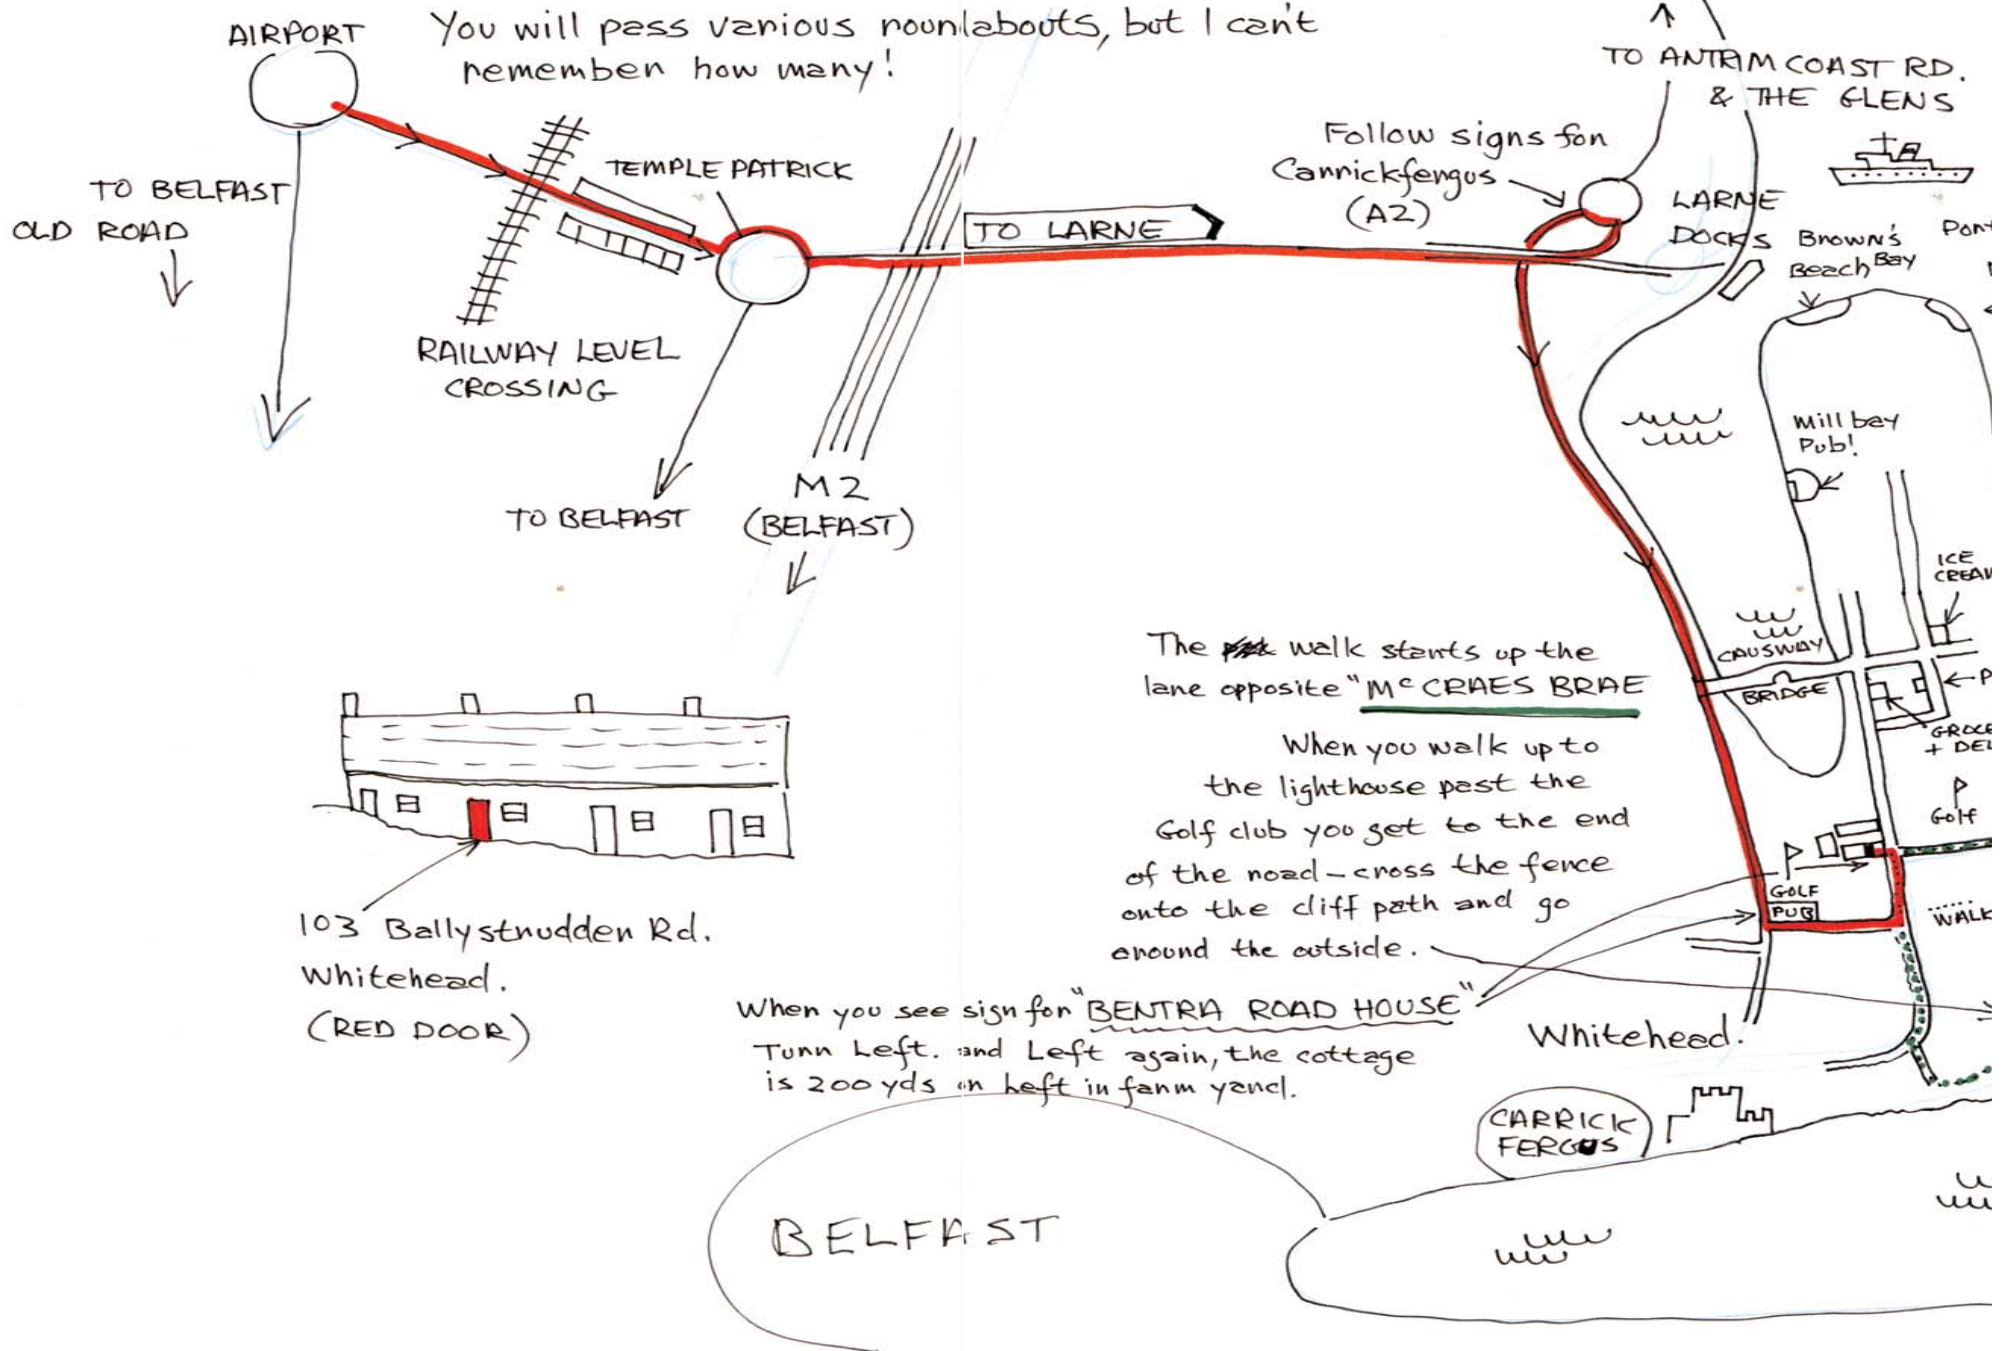 AIRPORT
You will pass various roundabouts, but I can't
remember how many!
TO BELFAST
OLD ROAD
TEMPLE PATRICK
RAILWAY LEVEL
CROSSING
TO BELFAST
M2
(BELFAST)
TO LARNE
Follow signs for
Carrickfergus
(A2)
TO ANTRIM COAST RD.
& THE GLENS
LARNE
DOCKS
Brown's
Beach Bay
Mill bay
Pub!
ICE
CREAM
CAUSWAY
BRIDGE
P
GROCE
+ DEL
Golf
GOLF
PUB
WALK
The walk starts up the
lane opposite "McCRAES BRAE
When you walk up to
the lighthouse past the
Golf club you get to the end
of the road - cross the fence
onto the cliff path and go
around the outside.
103 Ballystrudden Rd.
Whitehead.
(RED DOOR)
When you see sign for "BENTRA ROAD HOUSE"
Turn Left. and Left again, the cottage
is 200 yds on Left in farm yard.
Whitehead.
CARRICK
FERGUS
BELFAST